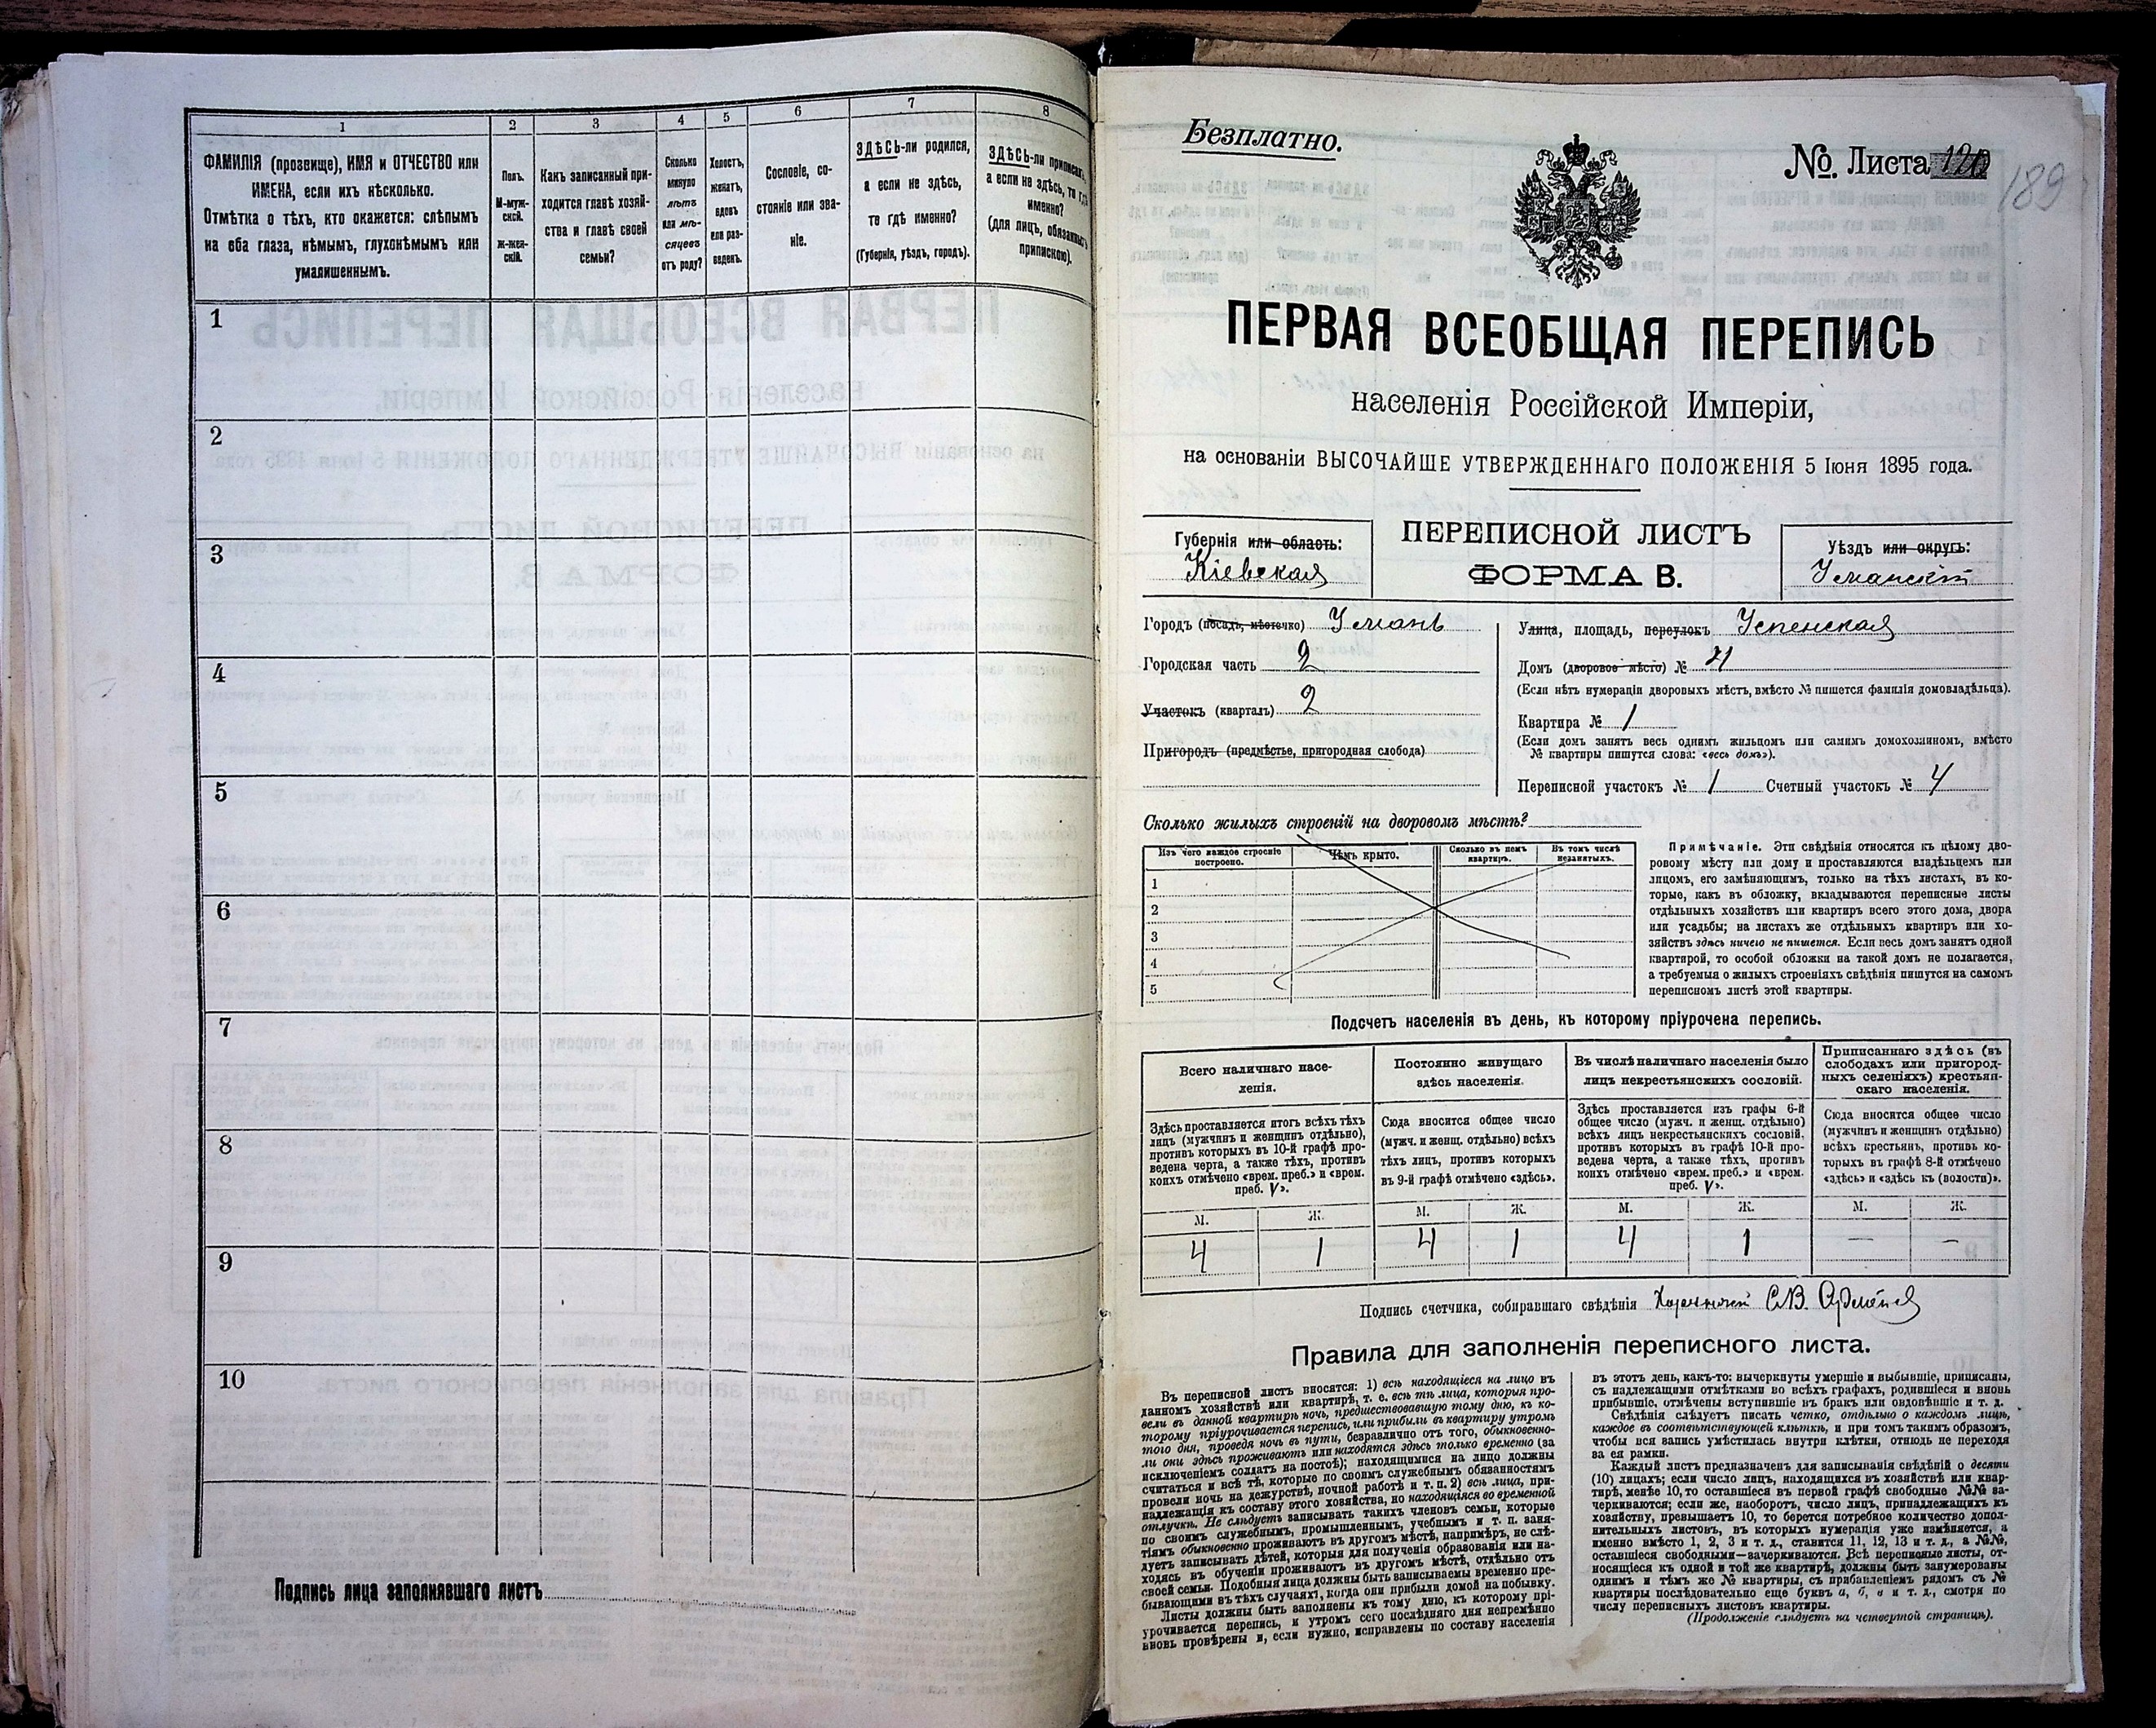 1
2
3
4
5
6
7
8
ФАМИЛІЯ (прозвище), ИМЯ и ОТЧЕСТВО или
ИМЕНА, если ихъ нѣсколько.
Отмѣтка о тѣхъ, кто окажется: слѣпымъ
на оба глаза, нѣмымъ, глухонѣмымъ или
умалишеннымъ.
Полъ.
М-муж-
ской.
Ж-жен-
скій.
Какъ записанный при-
ходится главѣ хозяй-
ства и главѣ своей
семьи?
Сколько
минуло
лѣтъ
или мѣ-
сяцевъ
отъ роду?
Холостъ,
женатъ,
вдовъ
или раз-
веденъ.
Сословіе, со-
стояніе или зва-
ніе.
ЗДѢСЬ-ли родился,
а если не здѣсь,
то гдѣ именно?
(Губернія, уѣздъ, городъ).
ЗДѢСЬ-ли приписанъ,
а если не здѣсь, то гдѣ
именно?
(для лицъ, обязанныхъ
припискою).
1
2
3
4
5
6
7
8
9
10
Подпись лица заполнявшаго листъ
Безплатно.
№ Листа
189
ПЕРВАЯ ВСЕОБЩАЯ ПЕРЕПИСЬ
населенія Россійской Имперіи,
на основаніи ВЫСОЧАЙШЕ УТВЕРЖДЕННАГО ПОЛОЖЕНІЯ 5 Іюня 1895 года.
Губернія или область:
Кіевская
ПЕРЕПИСНОЙ ЛИСТЪ
ФОРМА В.
Уѣздъ или округъ:
Уманскій
Городъ (посадъ, мѣстечко) Умань
Городская часть 2
Участокъ (кварталъ) 2
Пригородъ (предмѣстье, пригородная слобода)
Улица, площадь, переулокъ Успенская
Домъ (дворовое мѣсто) №
(Если нѣтъ нумераціи дворовыхъ мѣстъ, вмѣсто № пишется фамилія домовладѣльца).
Квартира № 1
(Если домъ занятъ весь однимъ жильцомъ или самимъ домохозяиномъ, вмѣсто
№ квартиры пишутся слова: «весь домъ»).
Переписной участокъ № 1 Счетный участокъ № 4
Сколько жилыхъ строеній на дворовомъ мѣстѣ?
Изъ чего каждое строеніе
построено.
Чѣмъ крыто.
Сколько въ немъ
квартиръ.
Въ томъ числѣ
незанятыхъ.
1
2
3
4
5
Примѣчаніе. Эти свѣдѣнія относятся къ цѣлому дво-
ровому мѣсту или дому и проставляются владѣльцемъ или
лицомъ, его замѣняющимъ, только на тѣхъ листахъ, въ ко-
торые, какъ въ обложку, вкладываются переписные листы
отдѣльныхъ хозяйствъ или квартиръ всего этого дома, двора
или усадьбы; на листахъ же отдѣльныхъ квартиръ или хо-
зяйствъ здѣсь ничего не пишется. Если весь домъ занятъ одной
квартирой, то особой обложки на такой домъ не полагается,
а требуемыя о жилыхъ строеніяхъ свѣдѣнія пишутся на самомъ
переписномъ листѣ этой квартиры.
Подсчетъ населенія въ день, къ которому пріурочена перепись.
Всего наличнаго насе-
ленія.
Постоянно живущаго
здѣсь населенія.
Въ числѣ наличнаго населенія было
лицъ некрестьянскихъ сословій.
Приписаннаго здѣсь (въ
слободахъ или пригород-
ныхъ селеніяхъ) крестьян-
скаго населенія.
Здѣсь проставляется итогъ всѣхъ тѣхъ
лицъ (мужчинъ и женщинъ отдѣльно),
противъ которыхъ въ 10-й графѣ про-
ведена черта, а также тѣхъ, противъ
коихъ отмѣчено «врем. преб.» и «врем.
преб. V».
Сюда вносится общее число
(мужч. и женщ. отдѣльно) всѣхъ
тѣхъ лицъ, противъ которыхъ
въ 9-й графѣ отмѣчено «здѣсь».
Здѣсь проставляется изъ графы 6-й
общее число (мужч. и женщ. отдѣльно)
всѣхъ лицъ некрестьянскихъ сословій,
противъ которыхъ въ графѣ 10-й про-
ведена черта, а также тѣхъ, противъ
коихъ отмѣчено «врем. преб.» и «врем.
преб. V».
Сюда вносится общее число
(мужчинъ и женщинъ отдѣльно)
всѣхъ крестьянъ, противъ ко-
торыхъ въ графѣ 8-й отмѣчено
«здѣсь» и «здѣсь къ (волости)».
М. Ж. М. Ж. М. Ж. М. Ж.
4 1 4 1 4 1 — —
Подпись счетчика, собиравшаго свѣдѣнія
Правила для заполненія переписного листа.
Въ переписной листъ вносятся: 1) всѣ находящіеся на лицо въ
данномъ хозяйствѣ или квартирѣ, т. е. всѣ тѣ лица, которыя про-
вели въ данной квартирѣ ночь, предшествовавшую тому дню, къ ко-
торому пріурочивается перепись, или прибыли въ квартиру утромъ
того дня, проведя ночь въ пути, безразлично отъ того, обыкновенно-
ли они здѣсь проживаютъ или находятся здѣсь только временно (за
исключеніемъ солдатъ на постоѣ); находящимися на лицо должны
считаться и всѣ тѣ, которые по своимъ служебнымъ обязанностямъ
провели ночь на дежурствѣ, ночной работѣ и т. п. 2) всѣ лица, при-
надлежащія къ составу этого хозяйства, но находящіяся во временной
отлучкѣ. Не слѣдуетъ записывать такихъ членовъ семьи, которые
по своимъ служебнымъ, промышленнымъ, учебнымъ и т. п. заня-
тіямъ обыкновенно проживаютъ въ другомъ мѣстѣ, напримѣръ, не слѣ-
дуетъ записывать дѣтей, которыя для полученія образованія или на-
ходясь въ обученіи проживаютъ въ другомъ мѣстѣ, отдѣльно отъ
своей семьи. Подобныя лица должны быть записываемы временно пре-
бывающими въ тѣхъ случаяхъ, когда они прибыли домой на побывку.
Листы должны быть заполнены къ тому дню, къ которому прі-
урочивается перепись, и утромъ сего послѣдняго дня непремѣнно
вновь провѣрены и, если нужно, исправлены по составу населенія
въ этотъ день, какъ-то: вычеркнуты умершіе и выбывшіе, приписаны,
съ надлежащими отмѣтками во всѣхъ графахъ, родившіеся и вновь
прибывшіе, отмѣчены вступившіе въ бракъ или овдовѣвшіе и т. д.
Свѣдѣнія слѣдуетъ писать четко, отдѣльно о каждомъ лицѣ,
каждое въ соотвѣтствующей клѣткѣ, и при томъ такимъ образомъ,
чтобы вся запись умѣстилась внутри клѣтки, отнюдь не переходя
за ея рамки.
Каждый листъ предназначенъ для записыванія свѣдѣній о десяти
(10) лицахъ; если число лицъ, находящихся въ хозяйствѣ или квар-
тирѣ, менѣе 10, то оставшіеся въ первой графѣ свободные №№ за-
черкиваются; если же, наоборотъ, число лицъ, принадлежащихъ къ
хозяйству, превышаетъ 10, то берется потребное количество допол-
нительныхъ листовъ, въ которыхъ нумерація уже измѣняется, а
именно вмѣсто 1, 2, 3 и т. д., ставится 11, 12, 13 и т. д., а №№,
оставшіеся свободными—зачеркиваются. Всѣ переписные листы, от-
носящіеся къ одной и той же квартирѣ, должны быть занумерованы
однимъ и тѣмъ же № квартиры, съ прибавленіемъ рядомъ съ №
квартиры послѣдовательно еще буквъ а, б, в и т. д., смотря по
числу переписныхъ листовъ квартиры.
(Продолженіе слѣдуетъ на четвертой страницѣ).